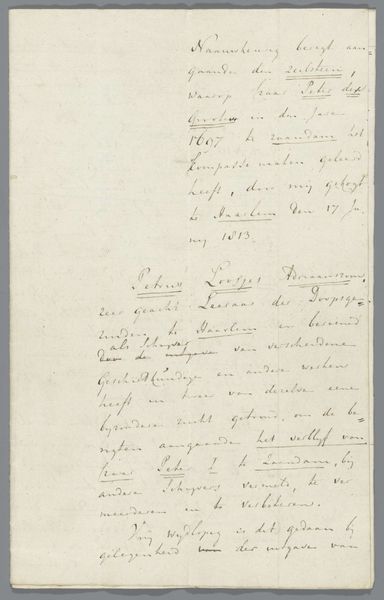 Naauwkeurig berigt aan=
gaande den zeilsteen,
waarop Czaar Peter de
Groote in den jare
1697 te zaandam het
Compasse maken geleerd
heeft, door mij gekogt
te Haarlem den 17 Ju
ny 1813.
Petrus Loosjes Adriaanszoon,
zeer geacht Leeraar der Doopsge=
zinden te Haarlem en beroemd
als Schrijver
van verscheidene
Geschiedkundige en andere werken
heeft in twee van dezelve eene
byzondere zucht getoond, om de be=
rigten aangaande het verblyf van
Czaar Peter I te Zaandam, bij
andere Schryvers vermeld, te ver
meerderen en te verbeteren.
Vrij wydlopig is dit gedaan bij
gelegenheid van der uitgave van